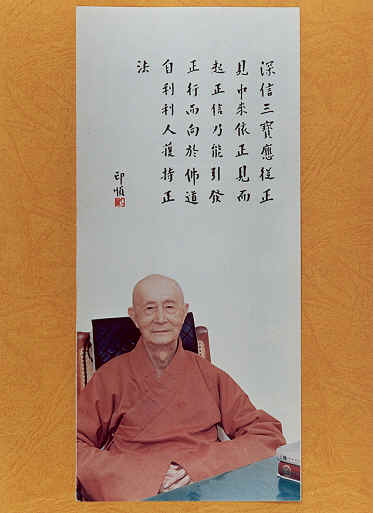 深信三寶應從正
見中來依正見而
起正信乃能引發
正行而向於佛道
自利利人護持正
法
印順